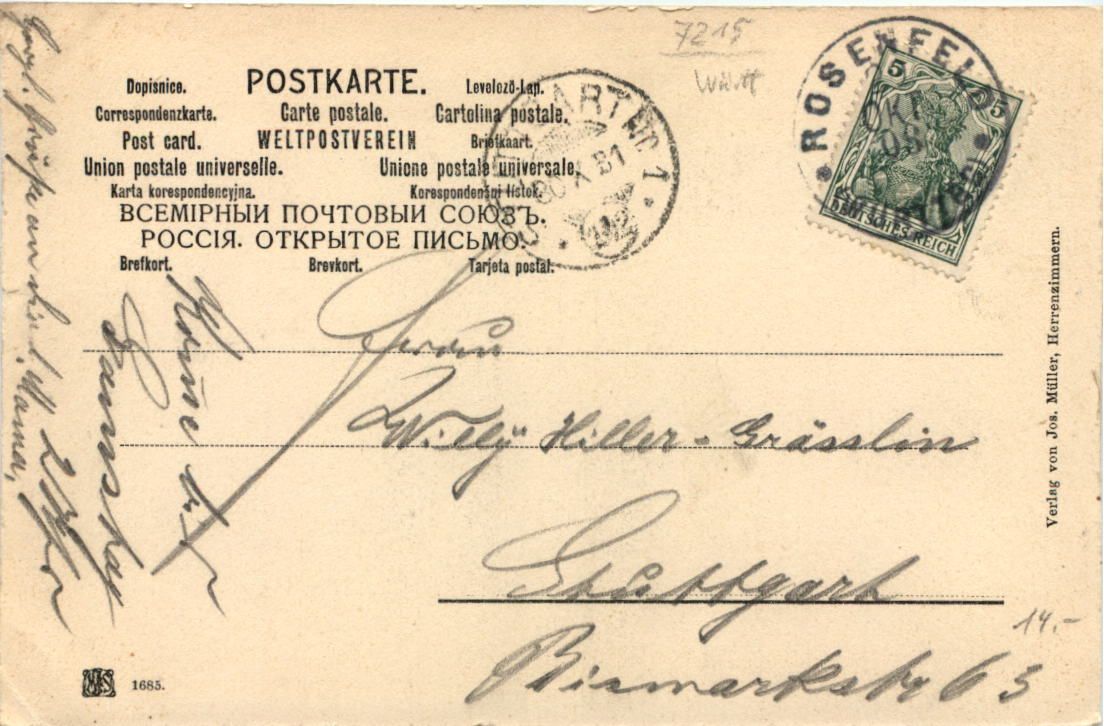 7215
Württ
Dopisnice. POSTKARTE. Levelező-Lap.
Correspondenzkarte. Carte postale. Cartolina postale.
Post card. WELTPOSTVEREIN Briefkaart.
Union postale universelle. Unione postale universale.
Karta korespondencyjna. Korespondenšni listok.
ВСЕМІРНЫЙ ПОЧТОВЫЙ СОЮЗЪ.
РОССІЯ. ОТКРЫТОЕ ПИСЬМО.
Brefkort. Brevkort. Tarjeta postal.
STUTTGART No. 1
30 X
ROSENFELD
OKT
5 5
DEUTSCHES REICH
Frau
Willy Hiller-Grässlin
Stuttgart
Bismarckstr 63
Komme
Samstag
2 Uhr
Grüße an
Mama,
14.-
Verlag von Jos. Müller, Herrenzimmern.
1685.